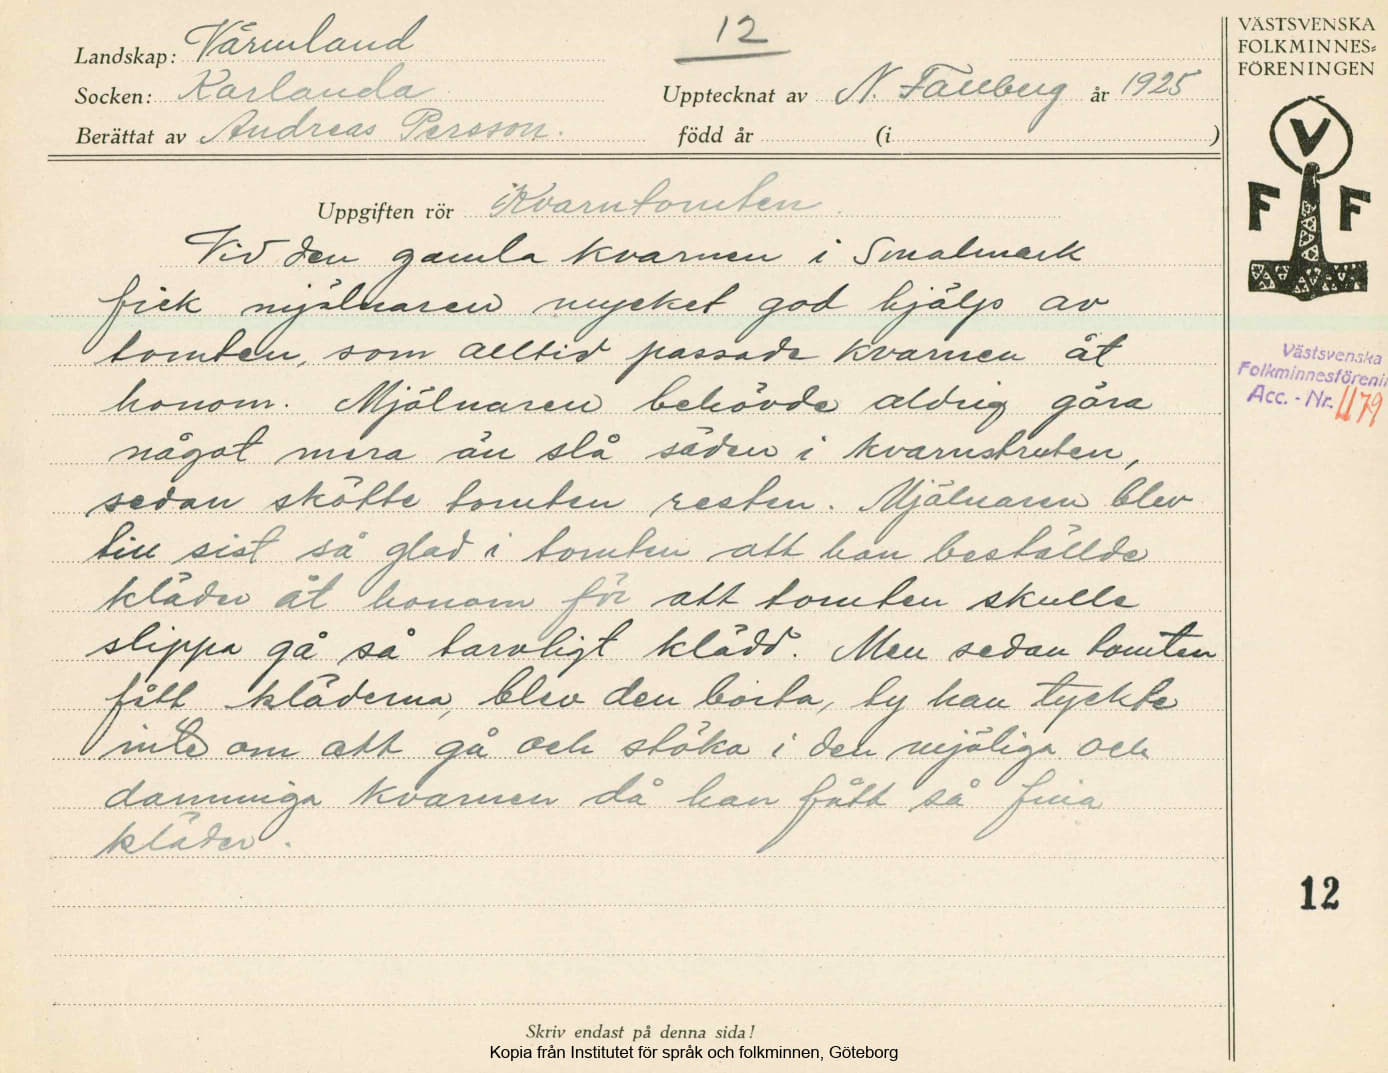 12
Landskap: Värmland
Socken: Karlanda
Upptecknat av N. Fallberg år 1925
Berättat av Andreas Persson.
född år (i )
Uppgiften rör Kvarntomten.
Vid den gamla kvarnen i Smalmark
fick mjölnaren mycket god hjälp av
tomten, som alltid passade kvarnen åt
honom. Mjölnaren behövde aldrig göra
något mera än slå säden i kvarnstruten,
sedan skötte tomten resten. Mjölnaren blev
till sist så glad i tomten att han beställde
kläder åt honom för att tomten skulle
slippa gå så tarvligt klädd. Men sedan tomten
fått kläderna, blev den borta, ty han tyckte
inte om att gå och stöka i den mjöliga och
dammiga kvarnen då han fått så fina
kläder.
Skriv endast på denna sida!
Kopia från Institutet för språk och folkminnen, Göteborg
VÄSTSVENSKA
FOLKMINNES=
FÖRENINGEN
V
F F
Västsvenska
Folkminnesförenin
Acc. - Nr. 1179
12